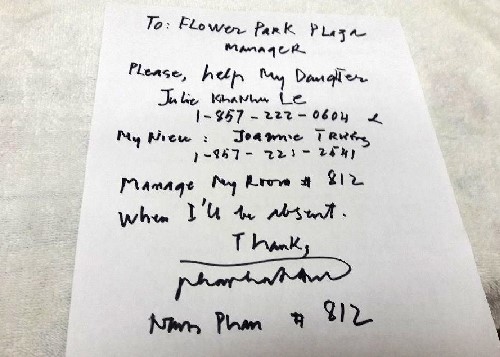 To: Flower Park Plaza
Manager
Please, help My Daugter
Julie KhaNhu Le
1-857-222-0604 &
My Niece: Joannie Truong
1-857-221-2541
Manage My Room # 812
When I'll be absent.
Thank,
Phan # 812